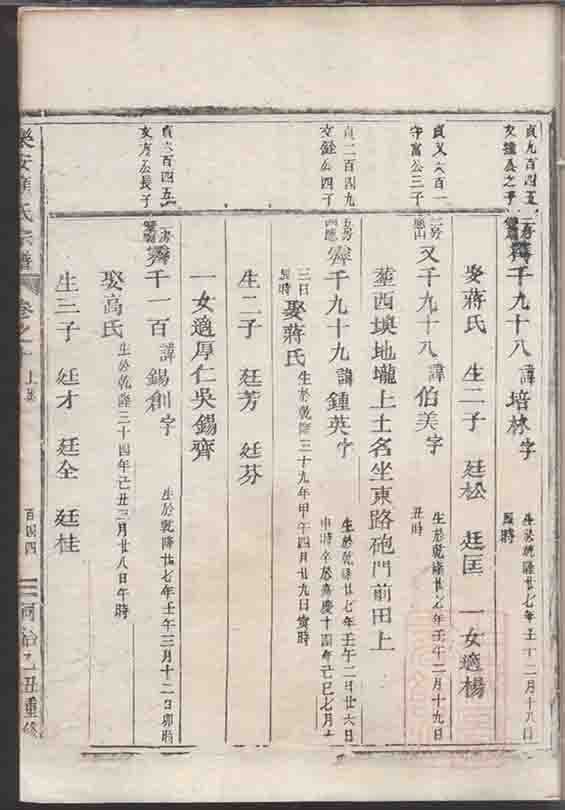 貞九百四五
貞又六百一
守富公三子
貞二百四九
文錦公四子
貞六百四五
千九十八 諱培林字 生於乾隆廿七年壬午二月十八日
辰時
娶蔣氏 生二子 廷松 廷匡 一女適楊
又千九十八 諱伯美字 生於乾隆廿七年壬午二月十九日
丑時
塟西塽地壠上土名坐東路砲門前田上
千九十九 諱鍾英字 生於乾隆廿七年壬午二月廿六日
申時卒於嘉慶十四年己巳七月十
三日
辰時
娶蔣氏 生於乾隆三十九年甲午四月廿九日寅時
生二子 廷芳 廷芬
一女適厚仁吳錫齊
千一百 諱錫創字 生於乾隆廿七年壬午三月十二日卯時
娶高氏 生於乾隆三十四年己丑三月廿八日午時
生三子 廷才 廷全 廷桂
氏宗譜 卷之
百四四
同治乙丑重修